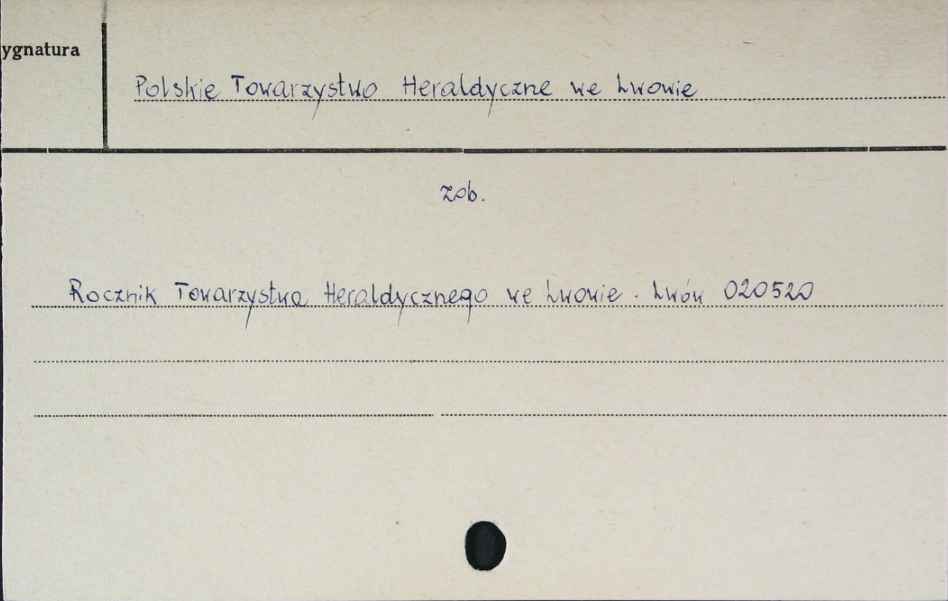 ygnatura
Polskie Towarzystwo Heraldyczne we Lwowie
zob.
Rocznik Towarzystwa Heraldycznego we Lwowie. Lwów 020520